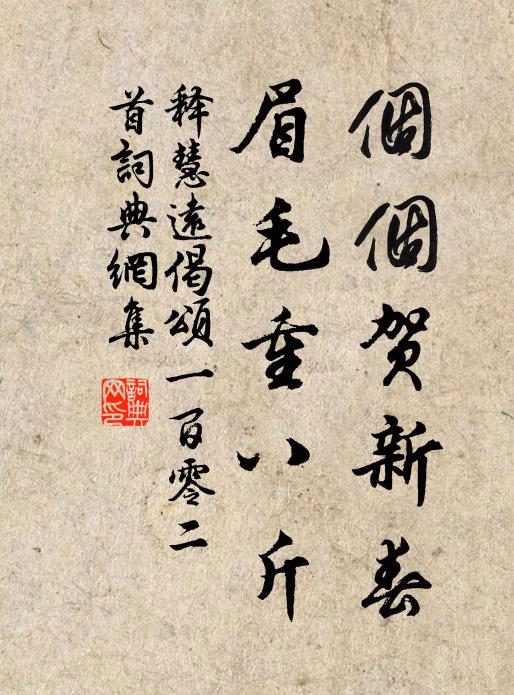 個個賀新春
眉毛重八斤
释慧遠偈頌一百零二
首詞典網集
詞典
网印